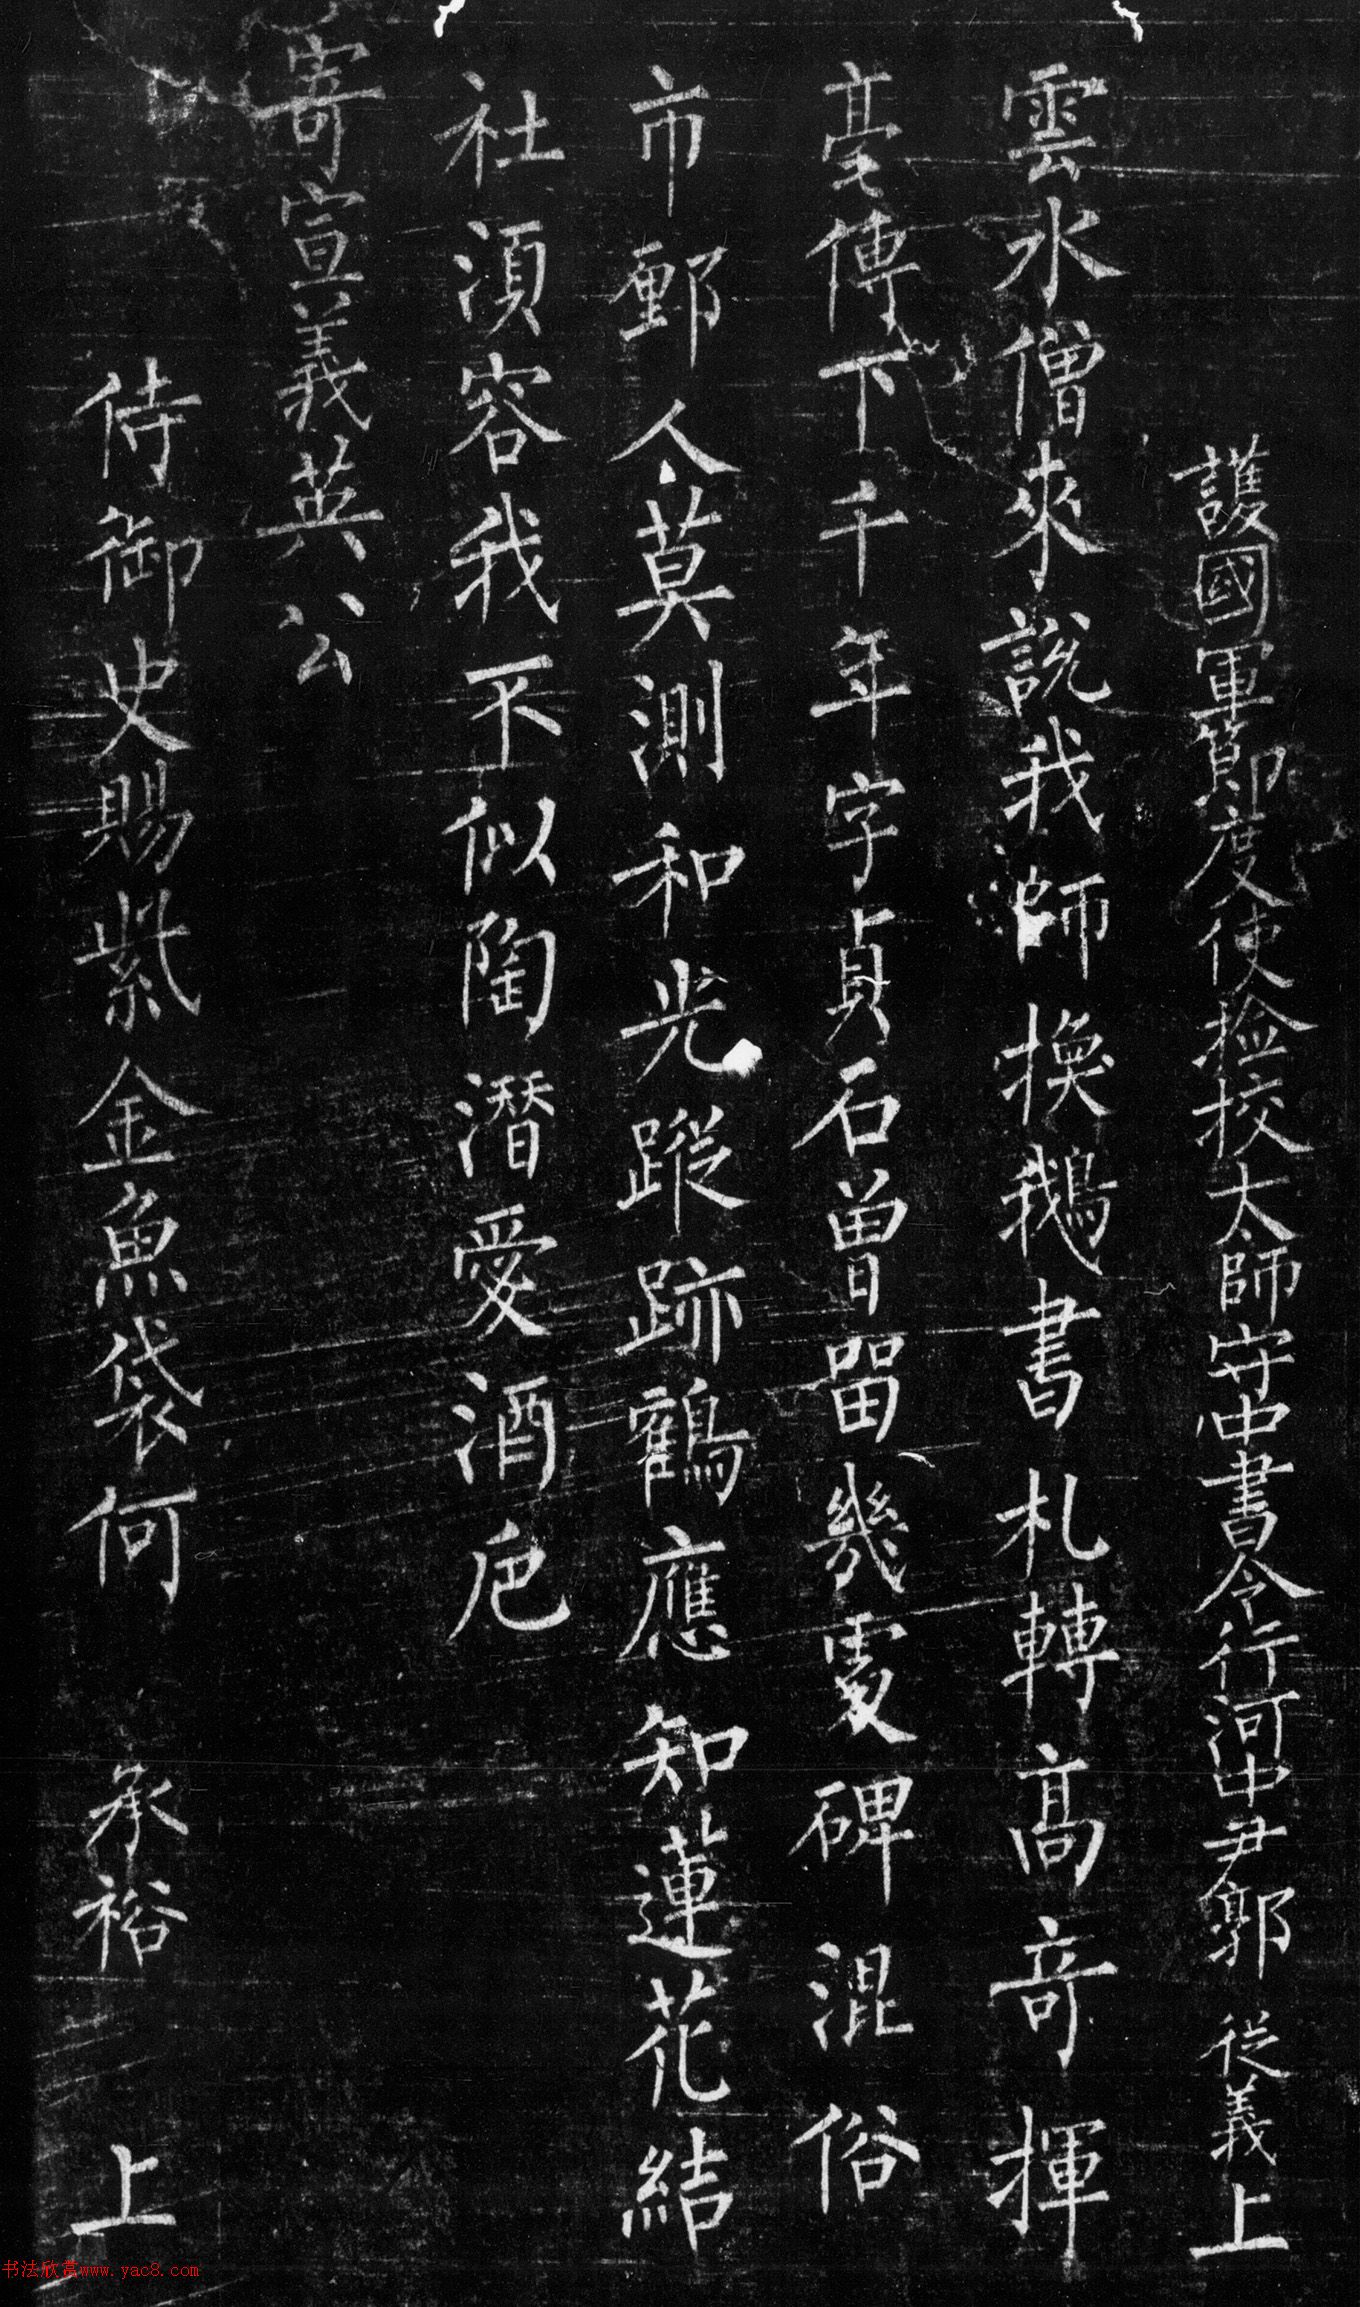 護國軍節度使撿挍太師守中書令行河中尹郭 從義上
雲水僧來說我師換鵝書札轉高奇揮
毫傳下千年字貞石曾留幾處碑混俗
市鄽人莫測和光蹤跡鶴應知蓮花結
社須容我不似陶潛愛酒卮
寄宣義英公
侍御史賜紫金魚袋何 承裕 上
书法欣赏www.yac8.com